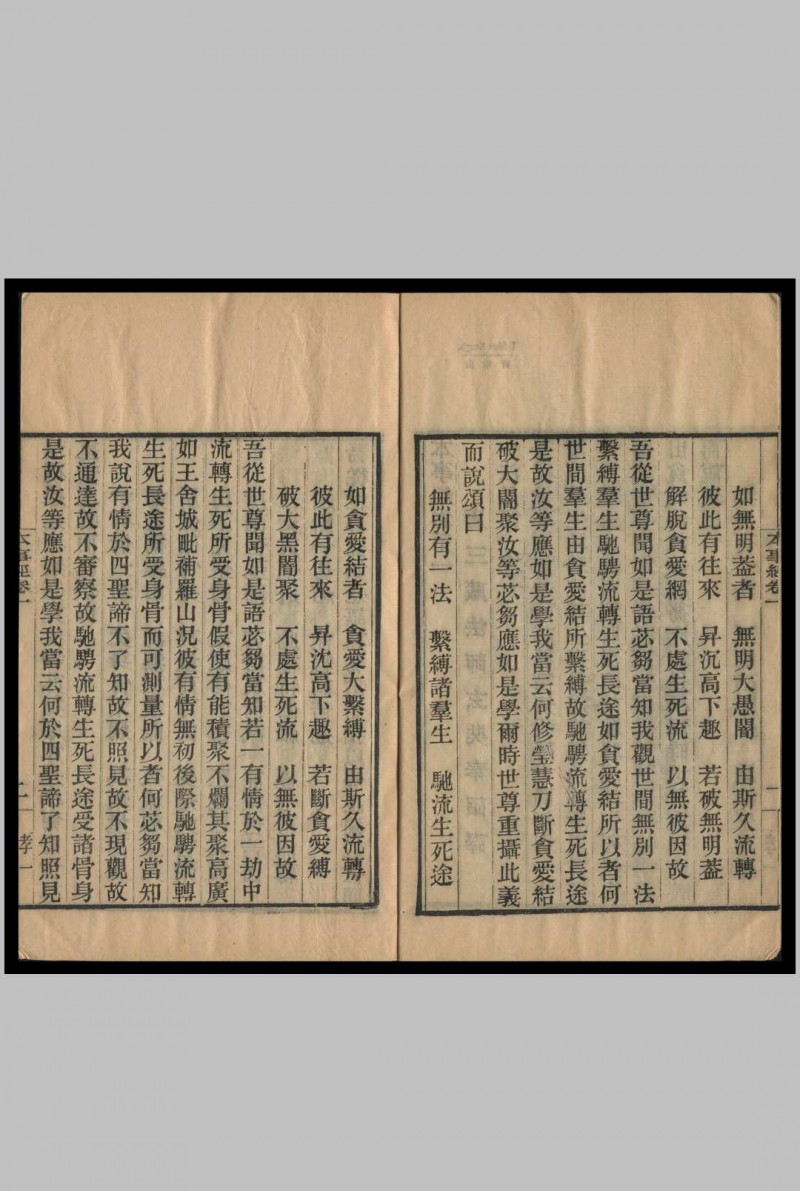 本事經卷一
一
如無明蓋者　無明大愚闇　由斯久流轉
彼此有往來　昇沉高下趣　若破無明蓋
解脫貪愛網　不處生死流　以無彼因故
吾從世尊聞如是語苾芻當知我觀世間無別一法
繫縛羣生馳騁流轉生死長途如貪愛結所以者何
世間羣生由貪愛結所繫縛故馳騁流轉生死長途
是故汝等應如是學我當云何修瑩慧刀斷貪愛結
破大闇聚汝等苾芻應如是學爾時世尊重攝此義
而說頌曰
無別有一法　繫縛諸羣生　馳流生死途
如貪愛結者　貪愛大繫縛　由斯久流轉
彼此有往來　昇沈高下趣　若斷貪愛縛
破大黑闇聚　不處生死流　以無彼因故
吾從世尊聞如是語苾芻當知若一有情於一劫中
流轉生死所受身骨假使有能積聚不爛其聚高廣
如王舍城毗補羅山況彼有情無初後際馳騁流轉
生死長途所受身骨而可測量所以者何苾芻當知
我說有情於四聖諦不了知故不照見故不現觀故
不通達故不審察故馳騁流轉生死長途受諸骨身
是故汝等應如是學我當云何於四聖諦了知照見
本事經卷一
二
孝一